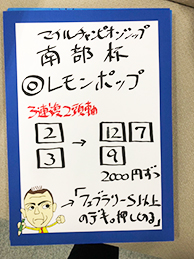 マイルチャンピオンシップ
南部杯
◎レモンポップ
3連複2頭軸
2 → 12 7
3 → 9
2000円ずつ
「フェブラリーS以上
のデキ。押し切る」